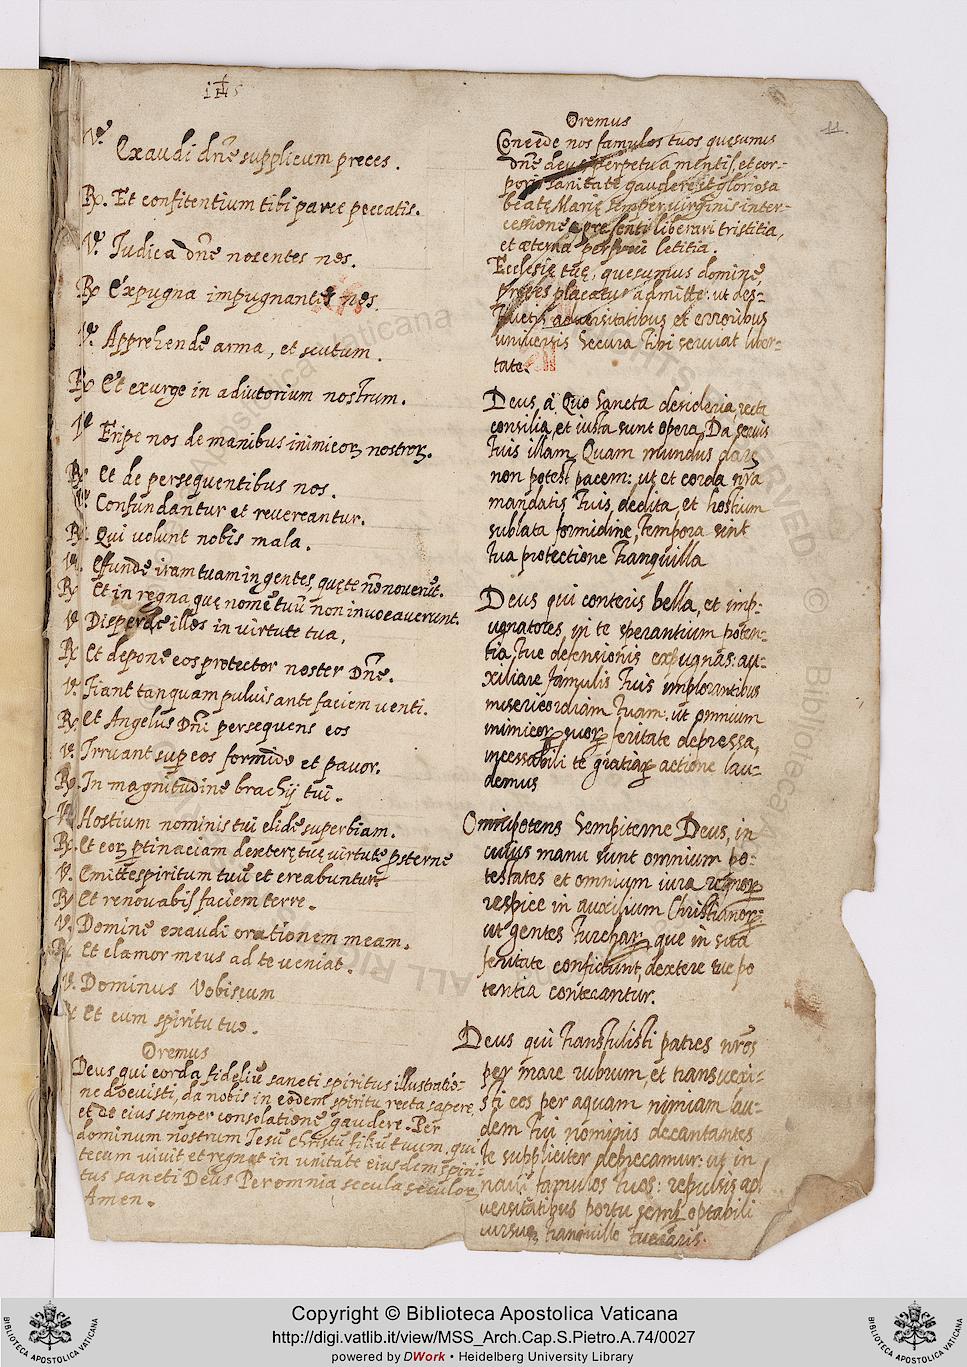 11.
V. Exaudi dñe supplicum preces.
R. Et confitentium tibi parce peccatis.
V. Iudica dñe nocentes nos.
R. Expugna impugnantes nos
V. Apprehende arma, et scutum.
R. Et exurge in adiutorium nostrum.
V. Eripe nos de manibus inimicoꝝ nostroꝝ.
R. Et de persequentibus nos.
V. Confundantur et revereantur.
R. Qui volunt nobis mala.
V. Effunde iram tuam in gentes, quę te nõ noverũt.
R. Et in regna quę nomẽ tuũ non invocaverunt.
V. Disperde illos in virtute tua,
R. Et depone eos protector noster Dñe.
V. Fiant tanquam pulvis ante faciem venti.
R. Et Angelus Dñi persequens eos
V. Irruant sup eos formido et pavor.
R. In magnitudine brachij tui.
V. Hostium nominis tui elide superbiam.
R. Et eoꝝ ptinaciam dexterę tuę virtute psterne
V. Emitte spiritum tuũ et creabuntur
R. Et renovabis faciem terre.
V. Domine exaudi orationem meam.
R. Et clamor meus ad te veniat.
V. Dominus vobiscum
R. Et cum spiritu tuo.
Oremus
Deus qui corda fideliũ sancti spiritus illustratio-
ne docuisti, da nobis in eodem spiritu recta sapere,
et de eius semper consolatione gaudere. Per
dominum nostrum Iesũ christũ filiũ tuum, qui
tecum vivit et regnat in unitate eiusdem spiri-
tus sancti Deus Per omnia secula seculoꝝ
Amen.
Oremus
Concede nos famulos tuos quęsumus
dñe deus perpetua mentis et cor-
poris sanitate gaudere et gloriosa
beatę Marię semper virginis inter-
cessione a presenti liberari tristitia,
et æterna perfrui letitia.
Ecclesię tuę, quęsumus domine,
preces placatus admitte: ut des-
tructis adversitatibus et erroribus
universis secura tibi serviat liber-
tate.
Deus, a quo sancta desideria, recta
consilia, et iusta sunt opera, Da servis
tuis illam, Quam mundus dare
non potest pacem: ut et corda nr̃a
mandatis tuis dedita, et hostium
sublata formidine, tempora sint
tua protectione tranquilla
Deus qui conteris bella, et imp-
ugnatores in te sperantium poten-
tia tuę defensionis expugnas: au-
xiliare famulis tuis implorantibus
misericordiam tuam. ut omnium
inimicoꝝ suoꝝ feritate depressa,
incessabili te gratiaꝝ actione lau-
demus
Omnipotens sempiterne Deus, in
cuius manu sunt omnium po-
testates et omnium iura regnoꝝ
respice in auxilium Christianoꝝ
ut gentes Turchaꝝ que in sua
feritate confidunt, dextere tue po
tentia conterantur.
Deus qui transtulisti patres nr̃os
per mare rubrum, et transvexi-
sti eos per aquam nimiam lau-
dem tui nominis decantantes
te suppliciter deprecamur: ut in
navi famulos tuos: repulsis ad
versitatibus portu semp optabili
cursuq tranquillo tuearis.
Copyright © Biblioteca Apostolica Vaticana
http://digi.vatlib.it/view/MSS_Arch.Cap.S.Pietro.A.74/0027
powered by DWork • Heidelberg University Library
BIBLIOTECA APOSTOLICA VATICANA
BIBLIOTECA APOSTOLICA VATICANA